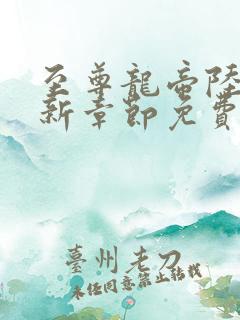 至尊龍帝陸
新章節免費
臺州老刀
未經同意禁止轉載